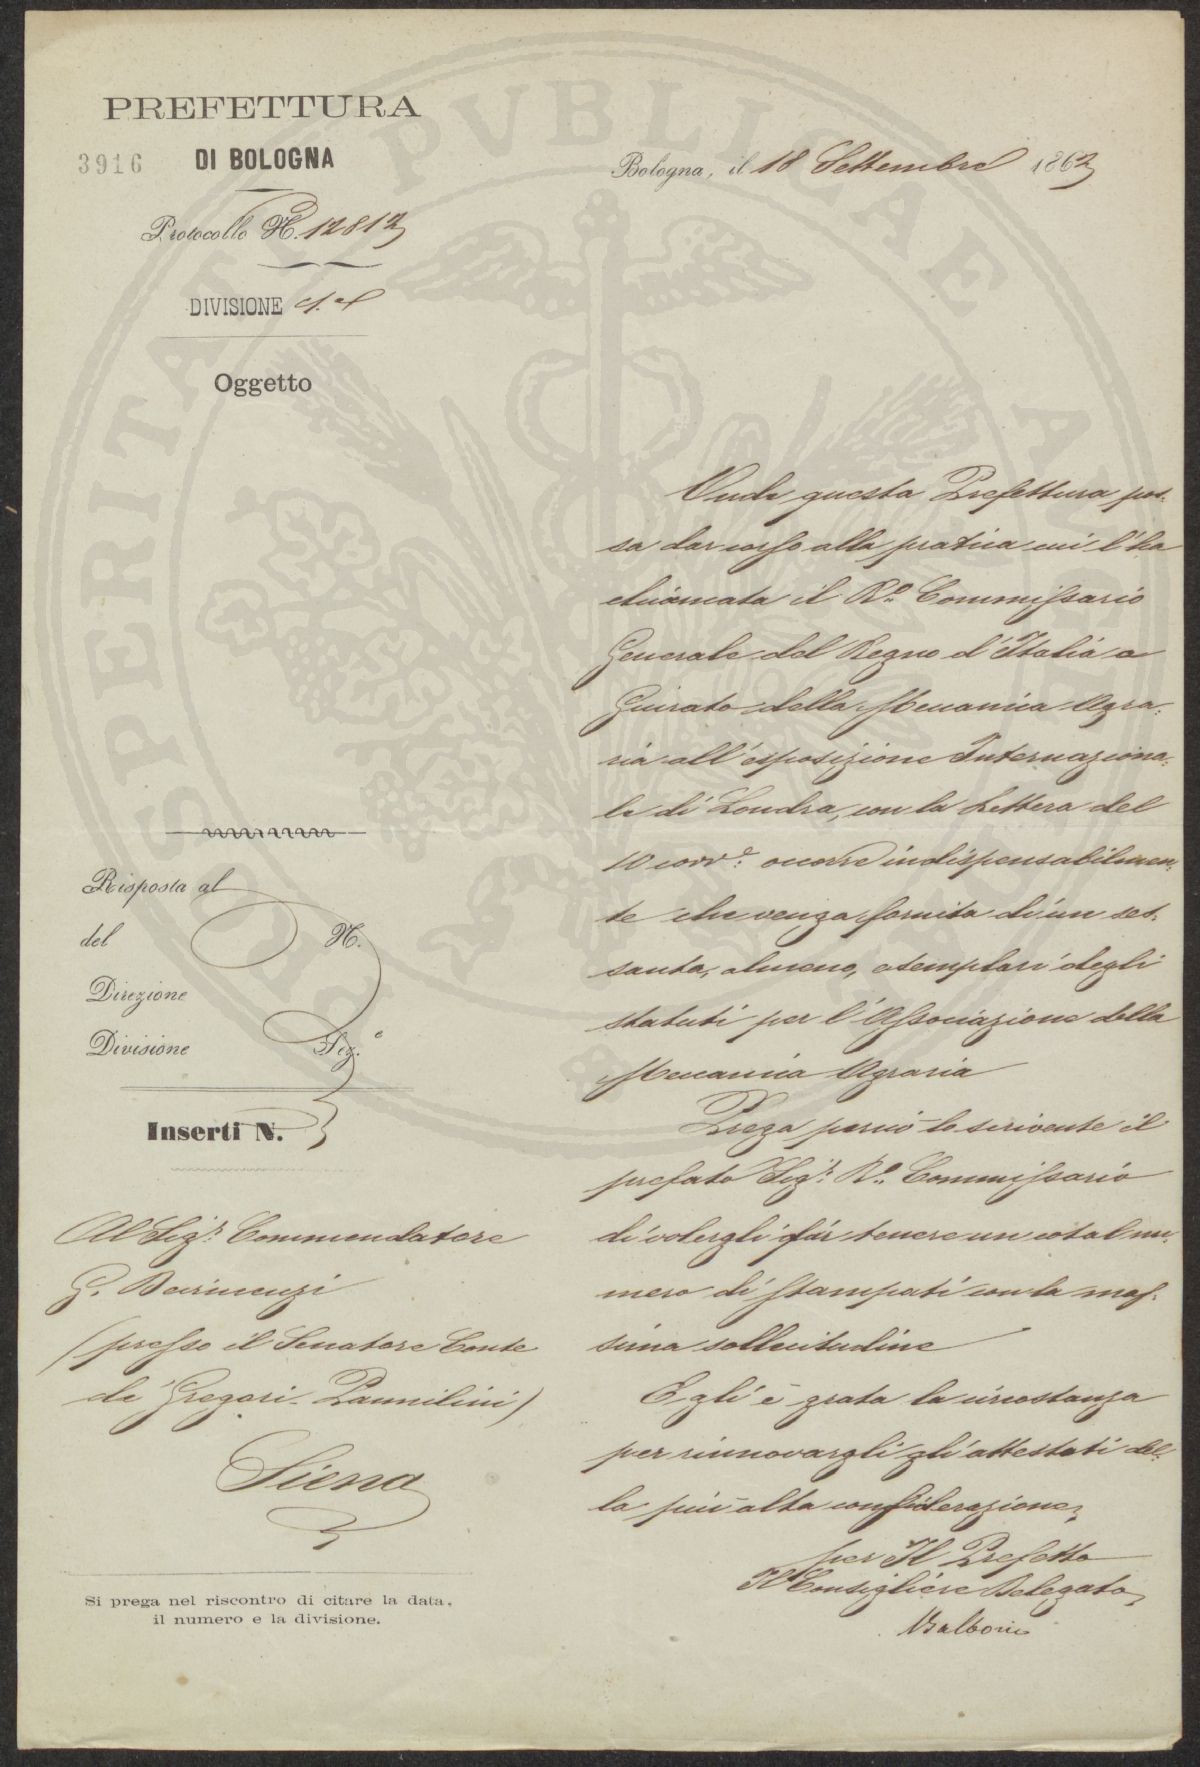 PREFETTURA
3916 DI BOLOGNA
Bologna, il 18 Settembre 1862
Protocollo N. 12812
DIVISIONE 1.a
Oggetto
Onde questa Prefettura pos-
sa dar corso alla pratica cui l'ha
chiamata il R.o Commissario
Generale del Regno d'Italia a
Giurato della Mecanica Agra-
ria all'esposizione Internaziona-
le di Londra, con la Lettera del
10 corr.e occorre indispensabilmen-
te che venga fornita di un ses-
santa, almeno, esemplari degli
statuti per l'Associazione della
Mecanica Agraria
Prega perciò lo scrivente il
prefato Sig.r R.o Commissario
di volergli far tenere un cotal nu-
mero di stampati con la mas-
sima sollecitudine
Egli è grata la circostanza
per rinnovargli gli attestati del-
la più alta considerazione
per Il Prefetto
Il Consigliere Delegato
Risposta al
del N.
Direzione
Divisione Sez.e
Inserti N.
Al Sig.r Commendatore
G. Devincenzi
(presso il Senatore Conte
de Gregori-Pannilini)
Siena
Si prega nel riscontro di citare la data,
il numero e la divisione.
PROSPERITATI PVBLICAE AVGENDAE